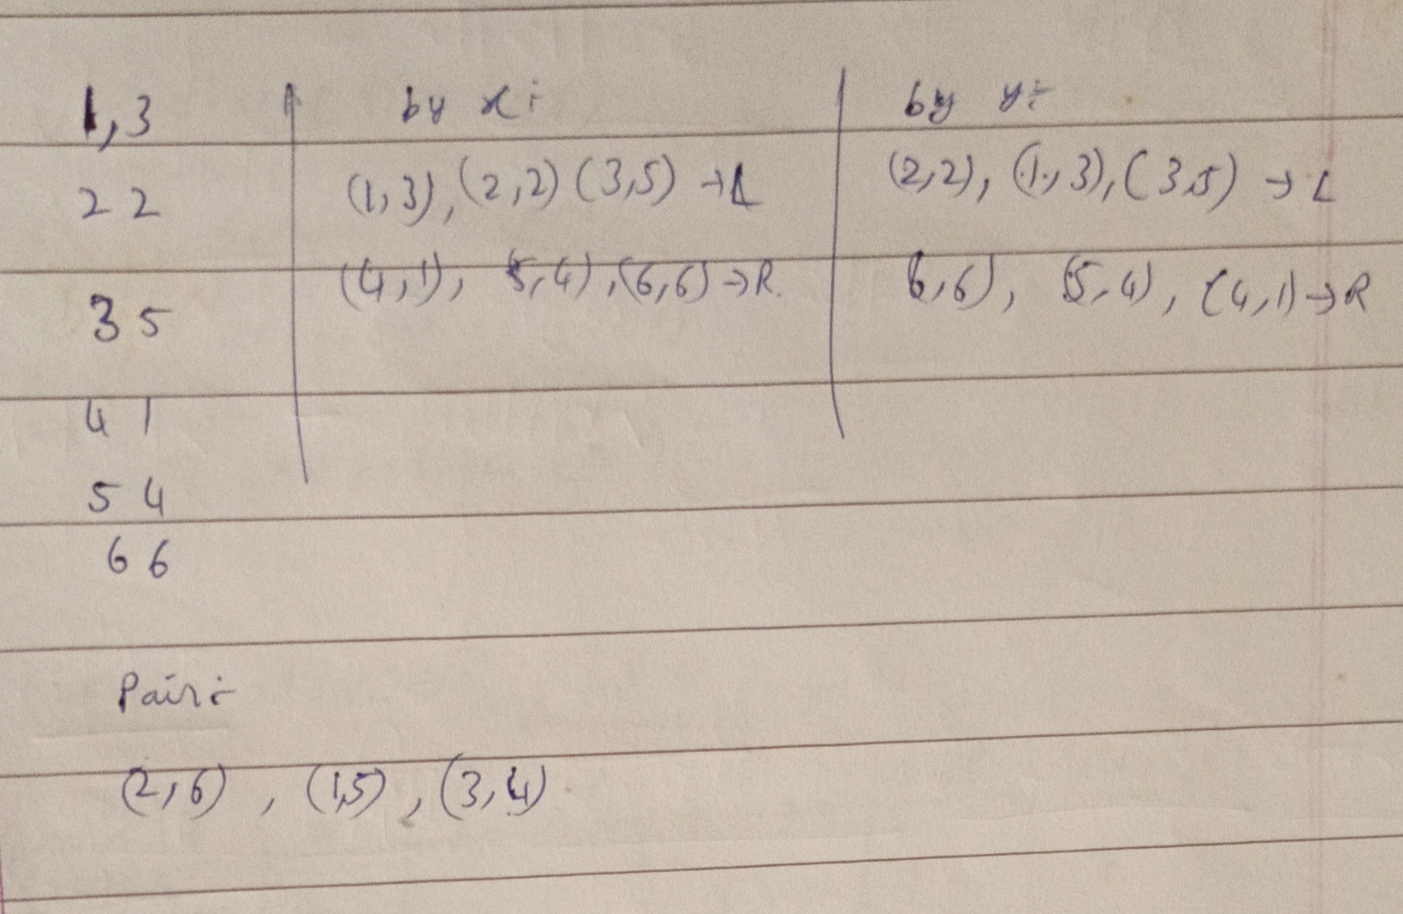 1,3
2 2
3 5
4 1
5 4
6 6
by x:
(1,3), (2,2) (3,5) → L
(4,1), (5,4), (6,6) → R.
by y:
(2,2), (1,3), (3,5) → L
6,6), (5,4), (4,1) → R
Pair:
(2,6), (1,5), (3,4)